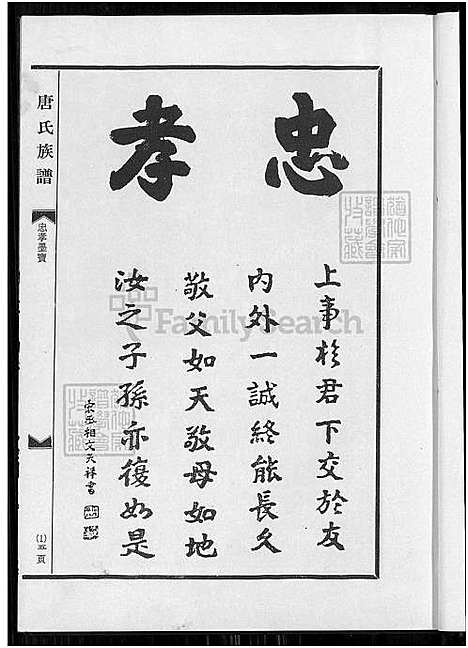 忠孝
上事於君下交於友
內外一誠終能長久
敬父如天敬母如地
汝之子孫亦復如是
宋丞相文天祥書
唐氏族譜
忠孝墨寶
(1)五頁
FamilySearch